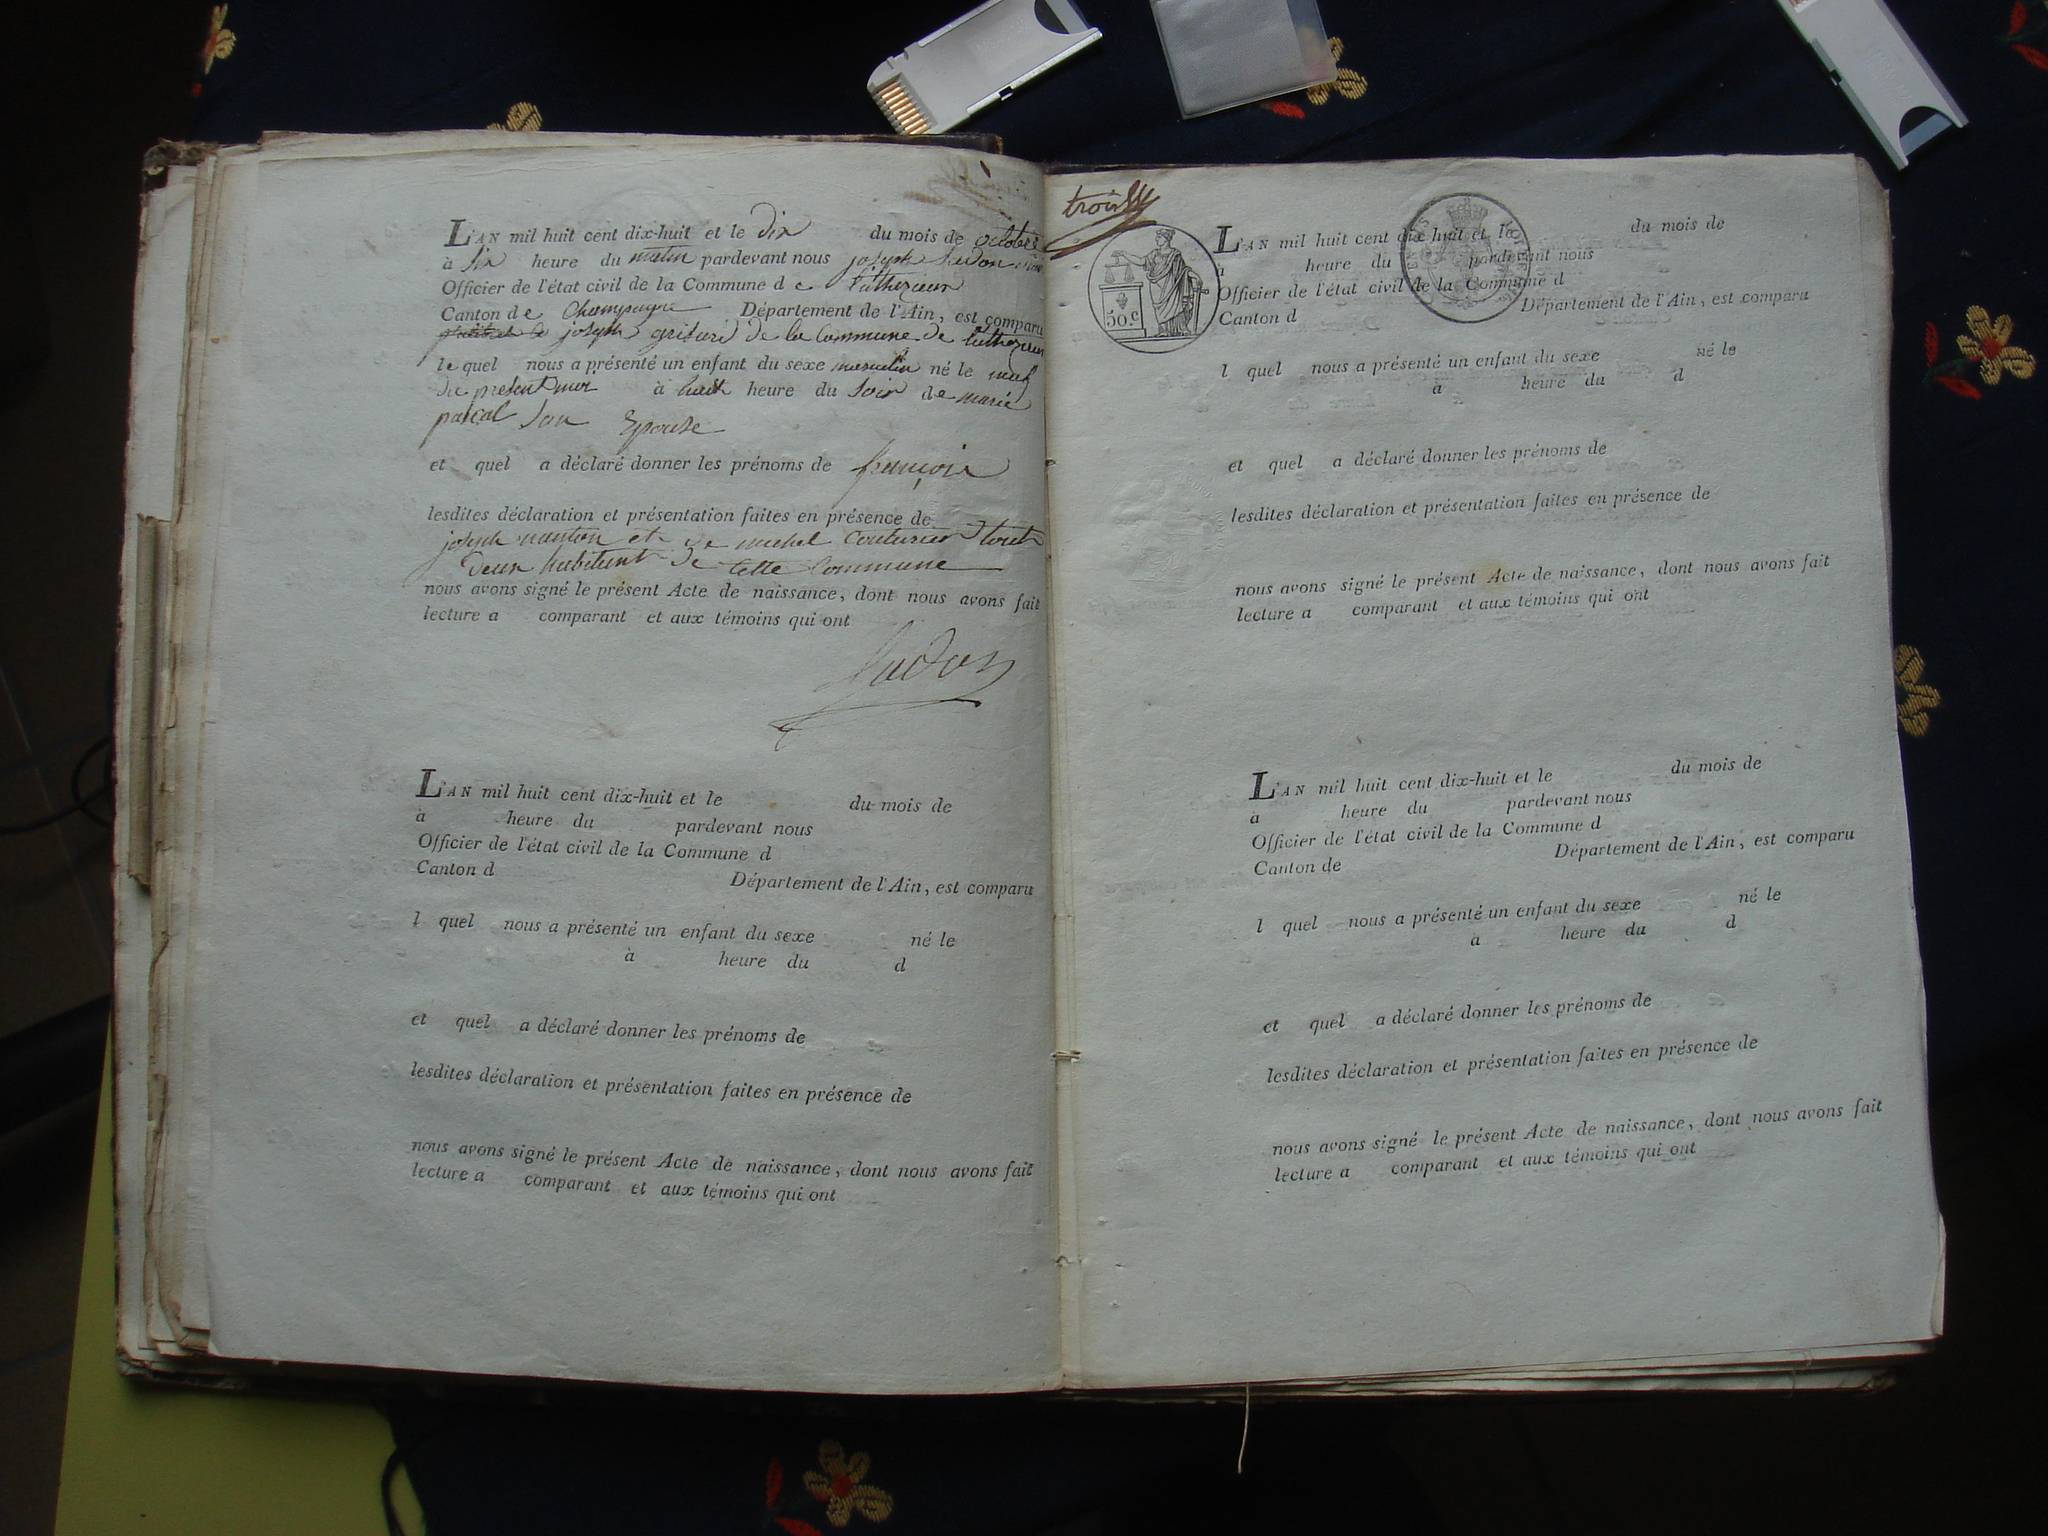 L'AN mil huit cent dix-huit et le Dix du mois de octobre
à Six heure du matin pardevant nous joseph Sudon
Officier de l'état civil de la Commune de Luthezieu
Canton de Champagne Département de l'Ain, est comparu
joseph de la Commune de luthezieu
le quel nous a présenté un enfant du sexe masculin né le neuf
du present moi à huit heure du Soir de marie
pascal Son Epouse
et quel a déclaré donner les prénoms de françois
lesdites déclaration et présentation faites en présence de
joseph et de michel Couturier tout
deux habitant de cette Commune
nous avons signé le présent Acte de naissance, dont nous avons fait
lecture a comparant et aux témoins qui ont
Sudon
L'AN mil huit cent dix-huit et le du mois de
à heure du pardevant nous
Officier de l'état civil de la Commune d
Canton d
Département de l'Ain, est comparu
l quel nous a présenté un enfant du sexe né le
à heure du d
et quel a déclaré donner les prénoms de
lesdites déclaration et présentation faites en présence de
nous avons signé le présent Acte de naissance, dont nous avons fait
lecture a comparant et aux témoins qui ont
50 c
L'AN mil huit cent dix huit et le du mois de
à heure du pardevant nous
Officier de l'état civil de la Commune d
Canton d Département de l'Ain, est comparu
l quel nous a présenté un enfant du sexe né le
à heure du d
et quel a déclaré donner les prénoms de
lesdites déclaration et présentation faites en présence de
nous avons signé le présent Acte de naissance, dont nous avons fait
lecture a comparant et aux témoins qui ont
L'AN mil huit cent dix-huit et le du mois de
à heure du pardevant nous
Officier de l'état civil de la Commune d
Canton de Département de l'Ain, est comparu
l quel nous a présenté un enfant du sexe né le
à heure du d
et quel a déclaré donner les prénoms de
lesdites déclaration et présentation faites en présence de
nous avons signé le présent Acte de naissance, dont nous avons fait
lecture a comparant et aux témoins qui ont